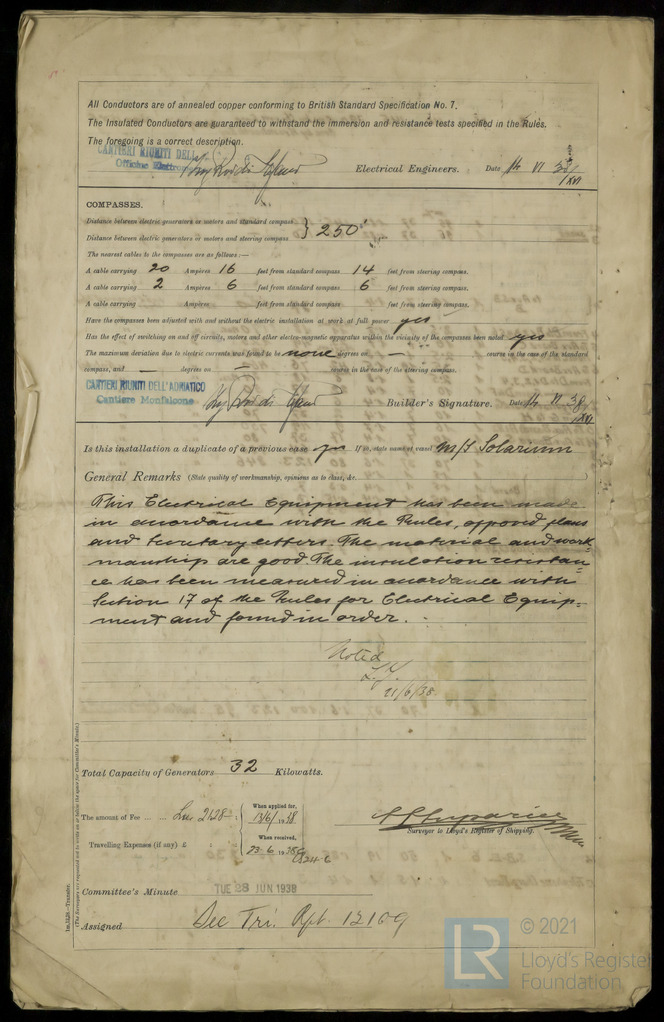 All Conductors are of annealed copper conforming to British Standard Specification No. 7.
The Insulated Conductors are guaranteed to withstand the immersion and resistance tests specified in the Rules.
The foregoing is a correct description.
CANTIERI RIUNITI DELL
Officine Elettro
Electrical Engineers. Date 14 VI 38/XVI
COMPASSES.
Distance between electric generators or motors and standard compass
Distance between electric generators or motors and steering compass } 250'
The nearest cables to the compasses are as follows:—
A cable carrying 20 Ampères 16 feet from standard compass 14 feet from steering compass.
A cable carrying 2 Ampères 6 feet from standard compass 6 feet from steering compass.
A cable carrying Ampères feet from standard compass feet from steering compass.
Have the compasses been adjusted with and without the electric installation at work at full power yes
Has the effect of switching on and off circuits, motors and other electro-magnetic apparatus within the vicinity of the compasses been noted yes
The maximum deviation due to electric currents was found to be none degrees on — course in the case of the standard
compass, and — degrees on — course in the case of the steering compass.
CANTIERI RIUNITI DELL'ADRIATICO
Cantiere Monfalcone
Builder's Signature. Date 14 VI 38/XVI
Is this installation a duplicate of a previous case yes If so, state name of vessel M/S Solarium
General Remarks (State quality of workmanship, opinions as to class, &c.
This Electrical Equipment has been made
in accordance with the Rules, approved plans
and Secretary letters. The material and work-
manship are good The insulation resistan-
ce has been measured in accordance with
Section 17 of the Rules for Electrical Equip-
ment and found in order.
Noted
21/6/38
Total Capacity of Generators 32 Kilowatts.
The amount of Fee ... ... Lire 2128 : When applied for, 13/6/1938
Travelling Expenses (if any) £ : : When received, 23.6.1938
Surveyor to Lloyd's Register of Shipping.
Committee's Minute TUE 28 JUN 1938
Assigned See Tri. Rpt. 12109
(The Surveyors are requested not to write on or below the space for Committee's Minute.)
© 2021
LR
Lloyd's Register
Foundation